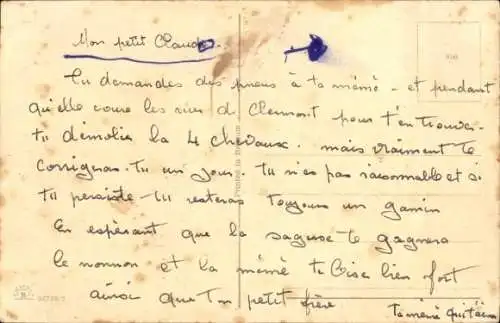 Mon petit Claude.
Tu demandes des pneus à ta mémé - et pendant
qu'elle coure les rues de Clermont pour t'en trouver
tu démolis la 4 chevaux. mais vraiment te
corrigeras-tu un jour. tu n'es pas raisonnable et si
tu persiste - tu resteras toujours un gamin
En espérant que la sagesse te gagnera
le nonnon et la mémé te bise bien fort
ainsi que ton petit frère
ta mémé qui t'aime